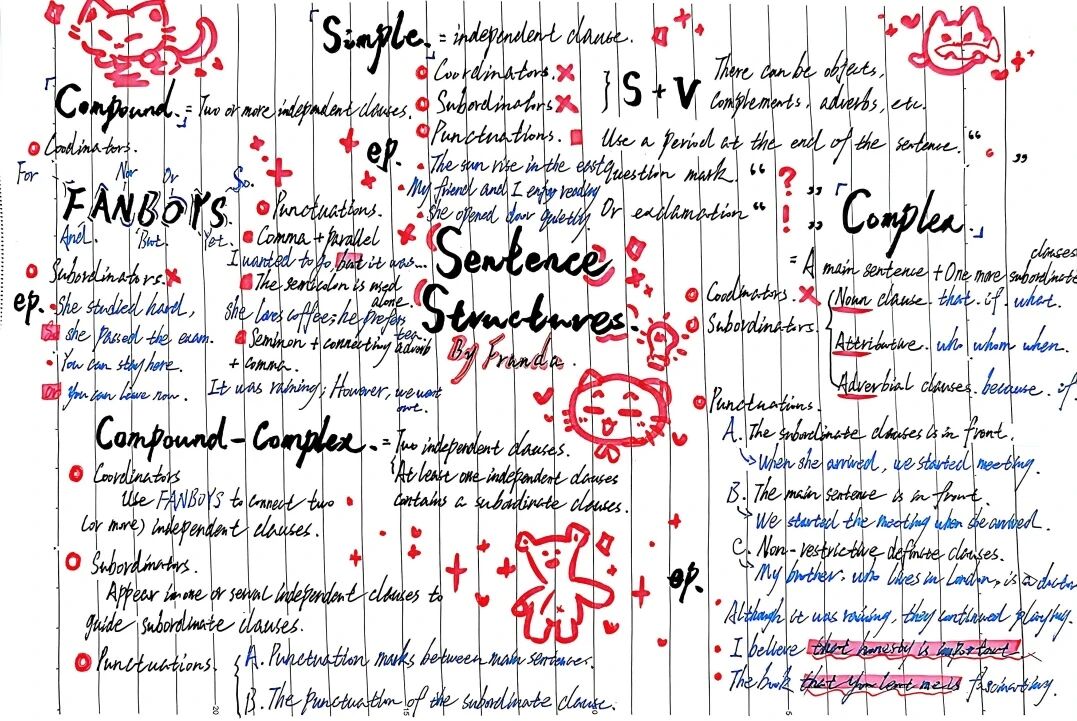 「Simple.」 = independent clause.
Coordinators. ×
Subordinators ×
Punctuations.
} S + V
There can be objects,
complements, adverbs, etc.
Use a period at the end of the sentence. “ . ”
question mark. “ ? ”
Or exclamation “ ! ”
ep.
The sun rise in the east
My friend and I enjoy reading
She opened door quietly
「Compound.」 = Two or more independent clauses.
Coodinators.
For Nor Or So.
FANBOYS
And. But. Yet.
Subordinators. ×
ep.
She studied hard,
so she passed the exam.
You can stay here.
or you can leave now.
Punctuations.
Comma + parallel
I wanted to go, but it was...
The semicolon is used
alone.
She loves coffee; he prefers
tea.
+ connecting adverb
+ comma.
It was raining; However, we went
out.
Sentence
Structures.
By Franda.
「Complex.」
= A main sentence + One more subordinate
clauses
Coodinators. ×
Subordinators.
Noun clause. that. if. what.
Attributive. who whom when.
Adverbial clauses. because. if
Punctuations.
A. The subordinate clauses is in front.
When she arrived, we started meeting.
B. The main sentence is in front.
We started the meeting when she arrived.
C. Non-restrictive definite clauses.
My brother, who lives in London, is a doctor
ep.
Although it was raining, they continued playing.
I believe that honesty is important
The book that fascinating.
Compound-Complex. = Two independent clauses.
At least one independent clauses
contains a subordinate clauses.
Coordinators
Use FANBOYS to connect two
(or more) independent clauses.
Subordinators.
Appear in one or serval independent clauses to
guide subordinate clauses.
Punctuations.
A. Punctuation marks between main sentences.
B. The punctuation of the subordinate clause.